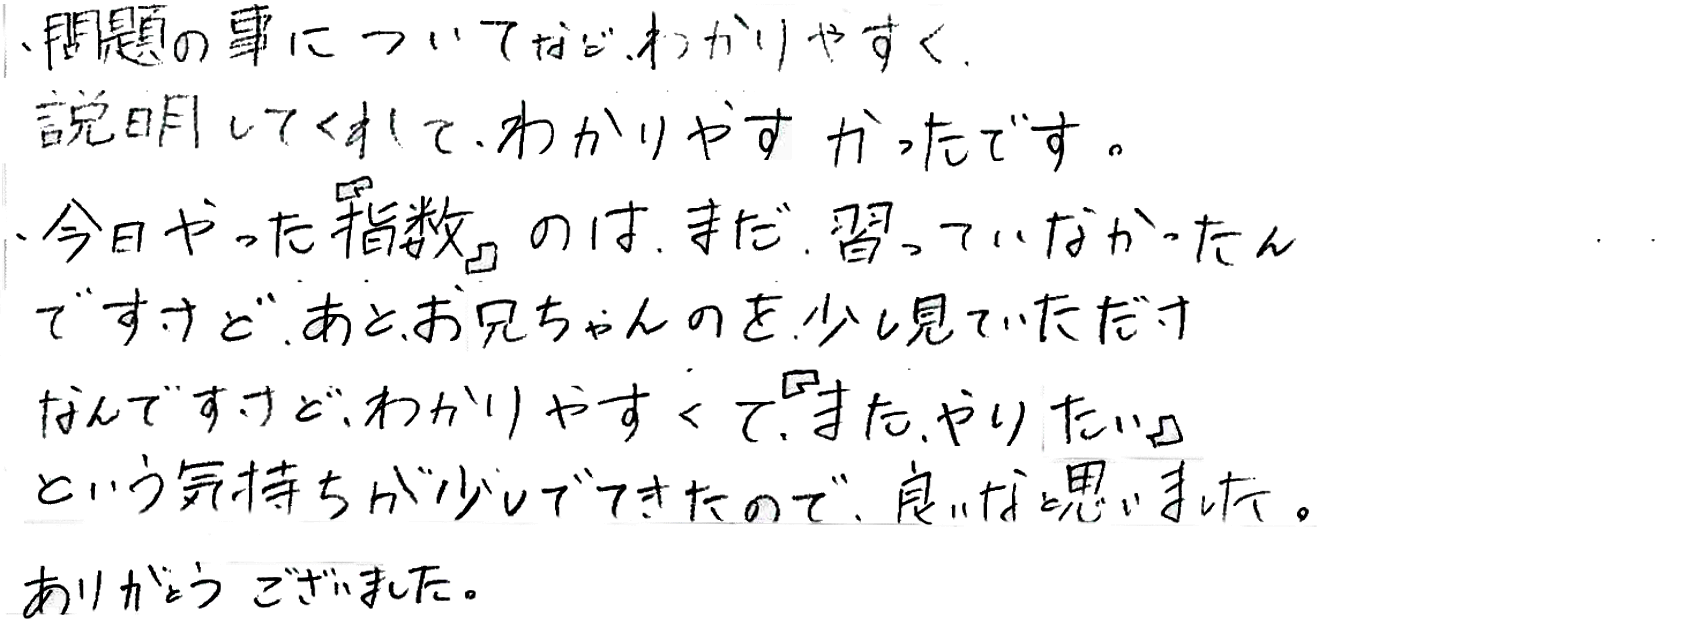 ・問題の事についてなど、わかりやすく、
説明してくれて、わかりやすかったです。
・今日やった『指数』のは、まだ、習っていなかったん
ですけど、あと、お兄ちゃんのを、少し見ていただけ
なんですけど、わかりやすくて、『また、やりたい』
という気持ちが少しでてきたので、良いなと思いました。
ありがとうございました。